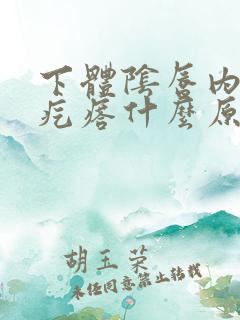 下體陰唇內
疙瘩什麼原
胡玉荣
未经同意禁止转载